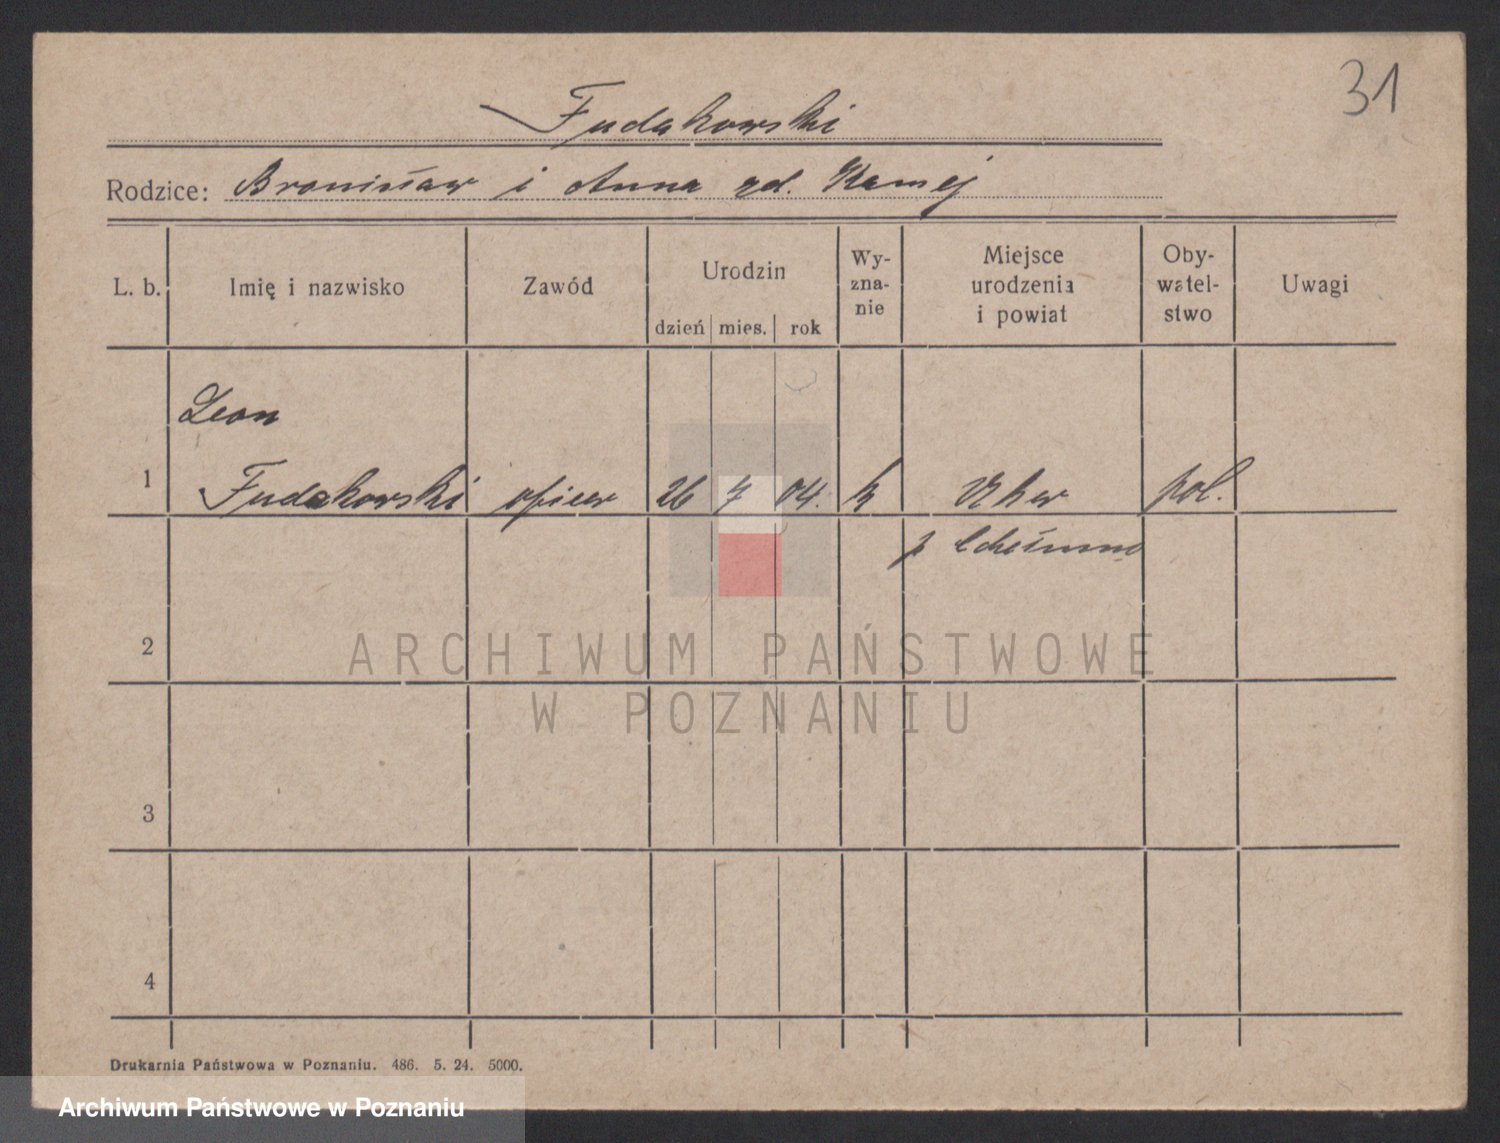 31
Fudakowski
Rodzice: Bronisław i Anna zd. Kamej
L. b.
Imię i nazwisko
Zawód
Urodzin
dzień mies. rok
Wy-
zna-
nie
Miejsce
urodzenia
i powiat
Oby-
watel-
stwo
Uwagi
Leon
1 Fudakowski oficer 26 7 04. k Uher pol.
p Chełmno
2
3
4
ARCHIWUM PAŃSTWOWE
W POZNANIU
Drukarnia Państwowa w Poznaniu. 486. 5. 24. 5000.
Archiwum Państwowe w Poznaniu